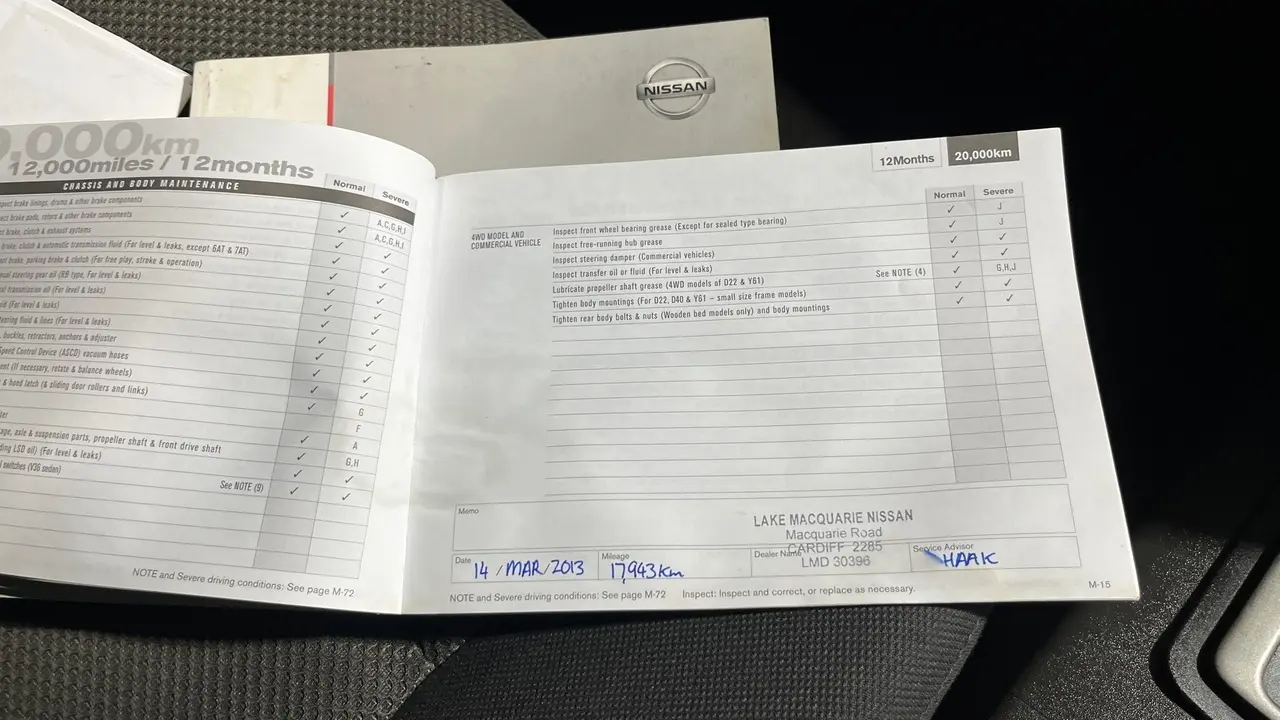 NISSAN
0,000km
12,000miles / 12months
CHASSIS AND BODY MAINTENANCE
Normal Severe
brake linings, drums & other brake components ✓ A,C,G,H,I
brake pads, rotors & other brake components ✓ A,C,G,H,I
brake, clutch & exhaust systems ✓ ✓
brake, clutch & automatic transmission fluid (For level & leaks, except 6AT & 7AT) ✓ ✓
brake, parking brake & clutch (For free play, stroke & operation) ✓ ✓
steering gear oil (RB type, For level & leaks) ✓ ✓
transmission oil (For level & leaks) ✓ ✓
(For level & leaks) ✓ ✓
fluid & lines (For level & leaks) ✓ ✓
buckles, retractors, anchors & adjuster ✓ ✓
Speed Control Device (ASCD) vacuum hoses ✓ ✓
(If necessary, rotate & balance wheels) ✓ ✓
& hood latch (& sliding door rollers and links) ✓ G
F
axle & suspension parts, propeller shaft & front drive shaft ✓ A
LSD oil) (For level & leaks) ✓ G,H
switches (V36 sedan) ✓ ✓
See NOTE (9) ✓ ✓
NOTE and Severe driving conditions: See page M-72
12Months 20,000km
Normal Severe
4WD MODEL AND
COMMERCIAL VEHICLE
Inspect front wheel bearing grease (Except for sealed type bearing) ✓ J
Inspect free-running hub grease ✓ J
Inspect steering damper (Commercial vehicles) ✓ ✓
Inspect transfer oil or fluid (For level & leaks) ✓ ✓
Lubricate propeller shaft grease (4WD models of D22 & Y61) See NOTE (4) ✓ G,H,J
Tighten body mountings (For D22, D40 & Y61 – small size frame models) ✓ ✓
Tighten rear body bolts & nuts (Wooden bed models only) and body mountings ✓ ✓
Memo
LAKE MACQUARIE NISSAN
Macquarie Road
CARDIFF 2285
LMD 30396
Date 14 / MAR / 2013
Mileage 17,943km
Dealer Name
Service Advisor HAAK
NOTE and Severe driving conditions: See page M-72 Inspect: Inspect and correct, or replace as necessary.
M-15